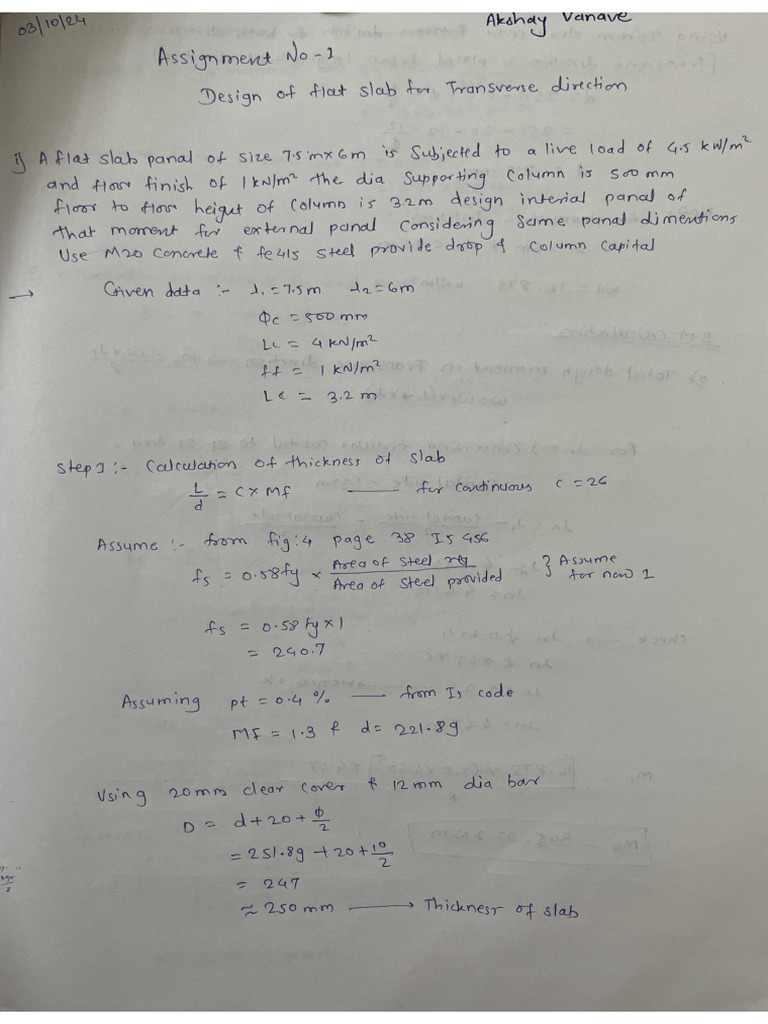 03/10/24
Akshay Vanave
Assignment No-1
Design of flat slab for Transverse direction
i) A flat slab panal of size 7.5mx6m is Subjected to a live load of 4.5 kW/m²
and floor finish of 1kN/m² the dia Supporting Column is 500mm
floor to floor heigut of Column is 3.2m design interial panal of
that moment for external panal Considering Same panal dimentions
Use M20 Concrete & fe415 steel provide drop & Column Capital
→ Given data :- L1 = 7.5m L2 = 6m
Φc = 500mm
LL = 4 kN/m²
ff = 1 kN/m²
Lc = 3.2 m
Step1 :- Calculation of thickness of slab
L/d = C x Mf — for Continuous C = 26
Assume :- from fig:4 page 38 IS 456
fs = 0.58fy x Area of steel rq / Area of Steel provided } Assume for now 1
fs = 0.58 fy x 1
= 240.7
Assuming pt = 0.4 % — from Is code
Mf = 1.3 & d = 221.89
Using 20mm clear cover & 12mm dia bar
D = d+20+Φ/2
= 251.89 +20+10/2
= 247
≈ 250mm → Thicknesr of slab